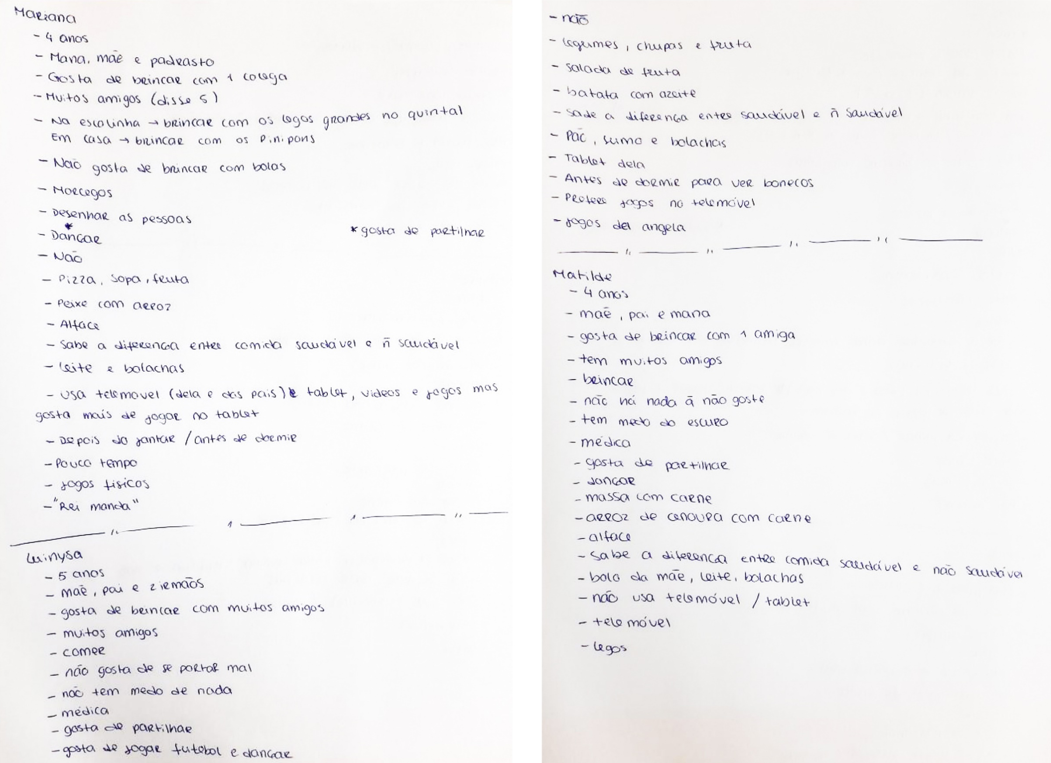 Mariana
- 4 anos
- Mana, mãe e padrasto
- Gosta de brincar com 1 colega
- Muitos amigos (disse 5)
- Na escolinha → brincar com os legos grandes no quintal
Em casa → brincar com os P.in.pons
- Não gosta de brincar com bolas
- Morcegos
- Desenhar as pessoas
- Dançar
* gosta de partilhar
- Não
- Pizza, sopa, fruta
- Peixe com arroz
- Alface
- Sabe a diferença entre comida saudável e ñ saudável
- leite e bolachas
- Usa telemovel (dela e dos pais) e tablet, videos e jogos mas
gosta mais de jogar no tablet
- Depois do jantar / antes de dormir
- Pouco tempo
- Jogos fisicos
- "Rei manda"
Luinysa
- 5 anos
- mãe, pai e 2 irmãos
- gosta de brincar com muitos amigos
- muitos amigos
- comer
- não gosta de se portar mal
- não tem medo de nada
- médica
- gosta de partilhar
- gosta de jogar futebol e dançar
- não
- legumes, chupas e fruta
- Salada de fruta
- batata com azeite
- Sabe a diferença entes saudável e ñ saudável
- Pão, sumo e bolachas
- Tablet dela
- Antes de dormir para ver bonecos
- Prefere jogos no telemóvel
- Jogos da angela
Matilde
- 4 anos
- mãe, pai e mana
- gosta de brincar com 1 amiga
- tem muitos amigos
- brincar
- não há nada q̃ não goste
- tem medo do escuro
- médica
- gosta de partilhar
- Dançar
- massa com carne
- arroz de cenoura com carne
- alface
- Sabe a diferença entre comida saudável e não saudável
- bolo da mãe, leite, bolachas
- não usa telemóvel / tablet
- telemóvel
- legos